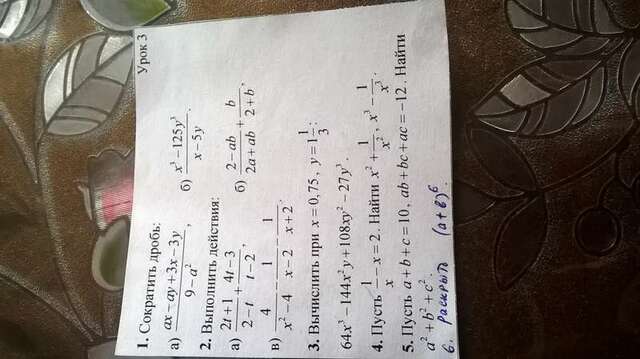 Урок 3
1. Сократить дробь:
а) (ax − ay + 3x − 3y)/(9 − a²), б) (x³ − 125y³)/(x − 5y).
2. Выполнить действия:
а) (2t + 1)/(2 − t) + (4t − 3)/(t − 2), б) (2 − ab)/(2a + ab) + b/(2 + b),
в) 4/(x² − 4) − 1/(x − 2) − 1/(x + 2).
3. Вычислить при x = 0,75, y = 1 1/3:
64x³ − 144x²y + 108xy² − 27y³.
4. Пусть 1/x − x = 2. Найти x² + 1/x², x³ − 1/x³.
5. Пусть a + b + c = 10, ab + bc + ac = −12. Найти
a² + b² + c².
6. Раскрыть (a+b)⁶